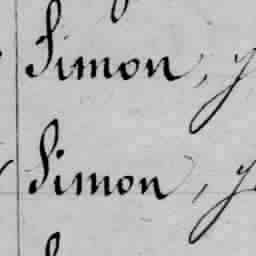 Simon, y
Simon, y